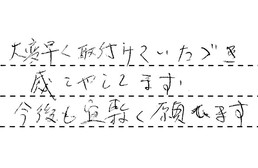 大変早く取付けていただき
感しゃしてます
今後も宜敷く願います